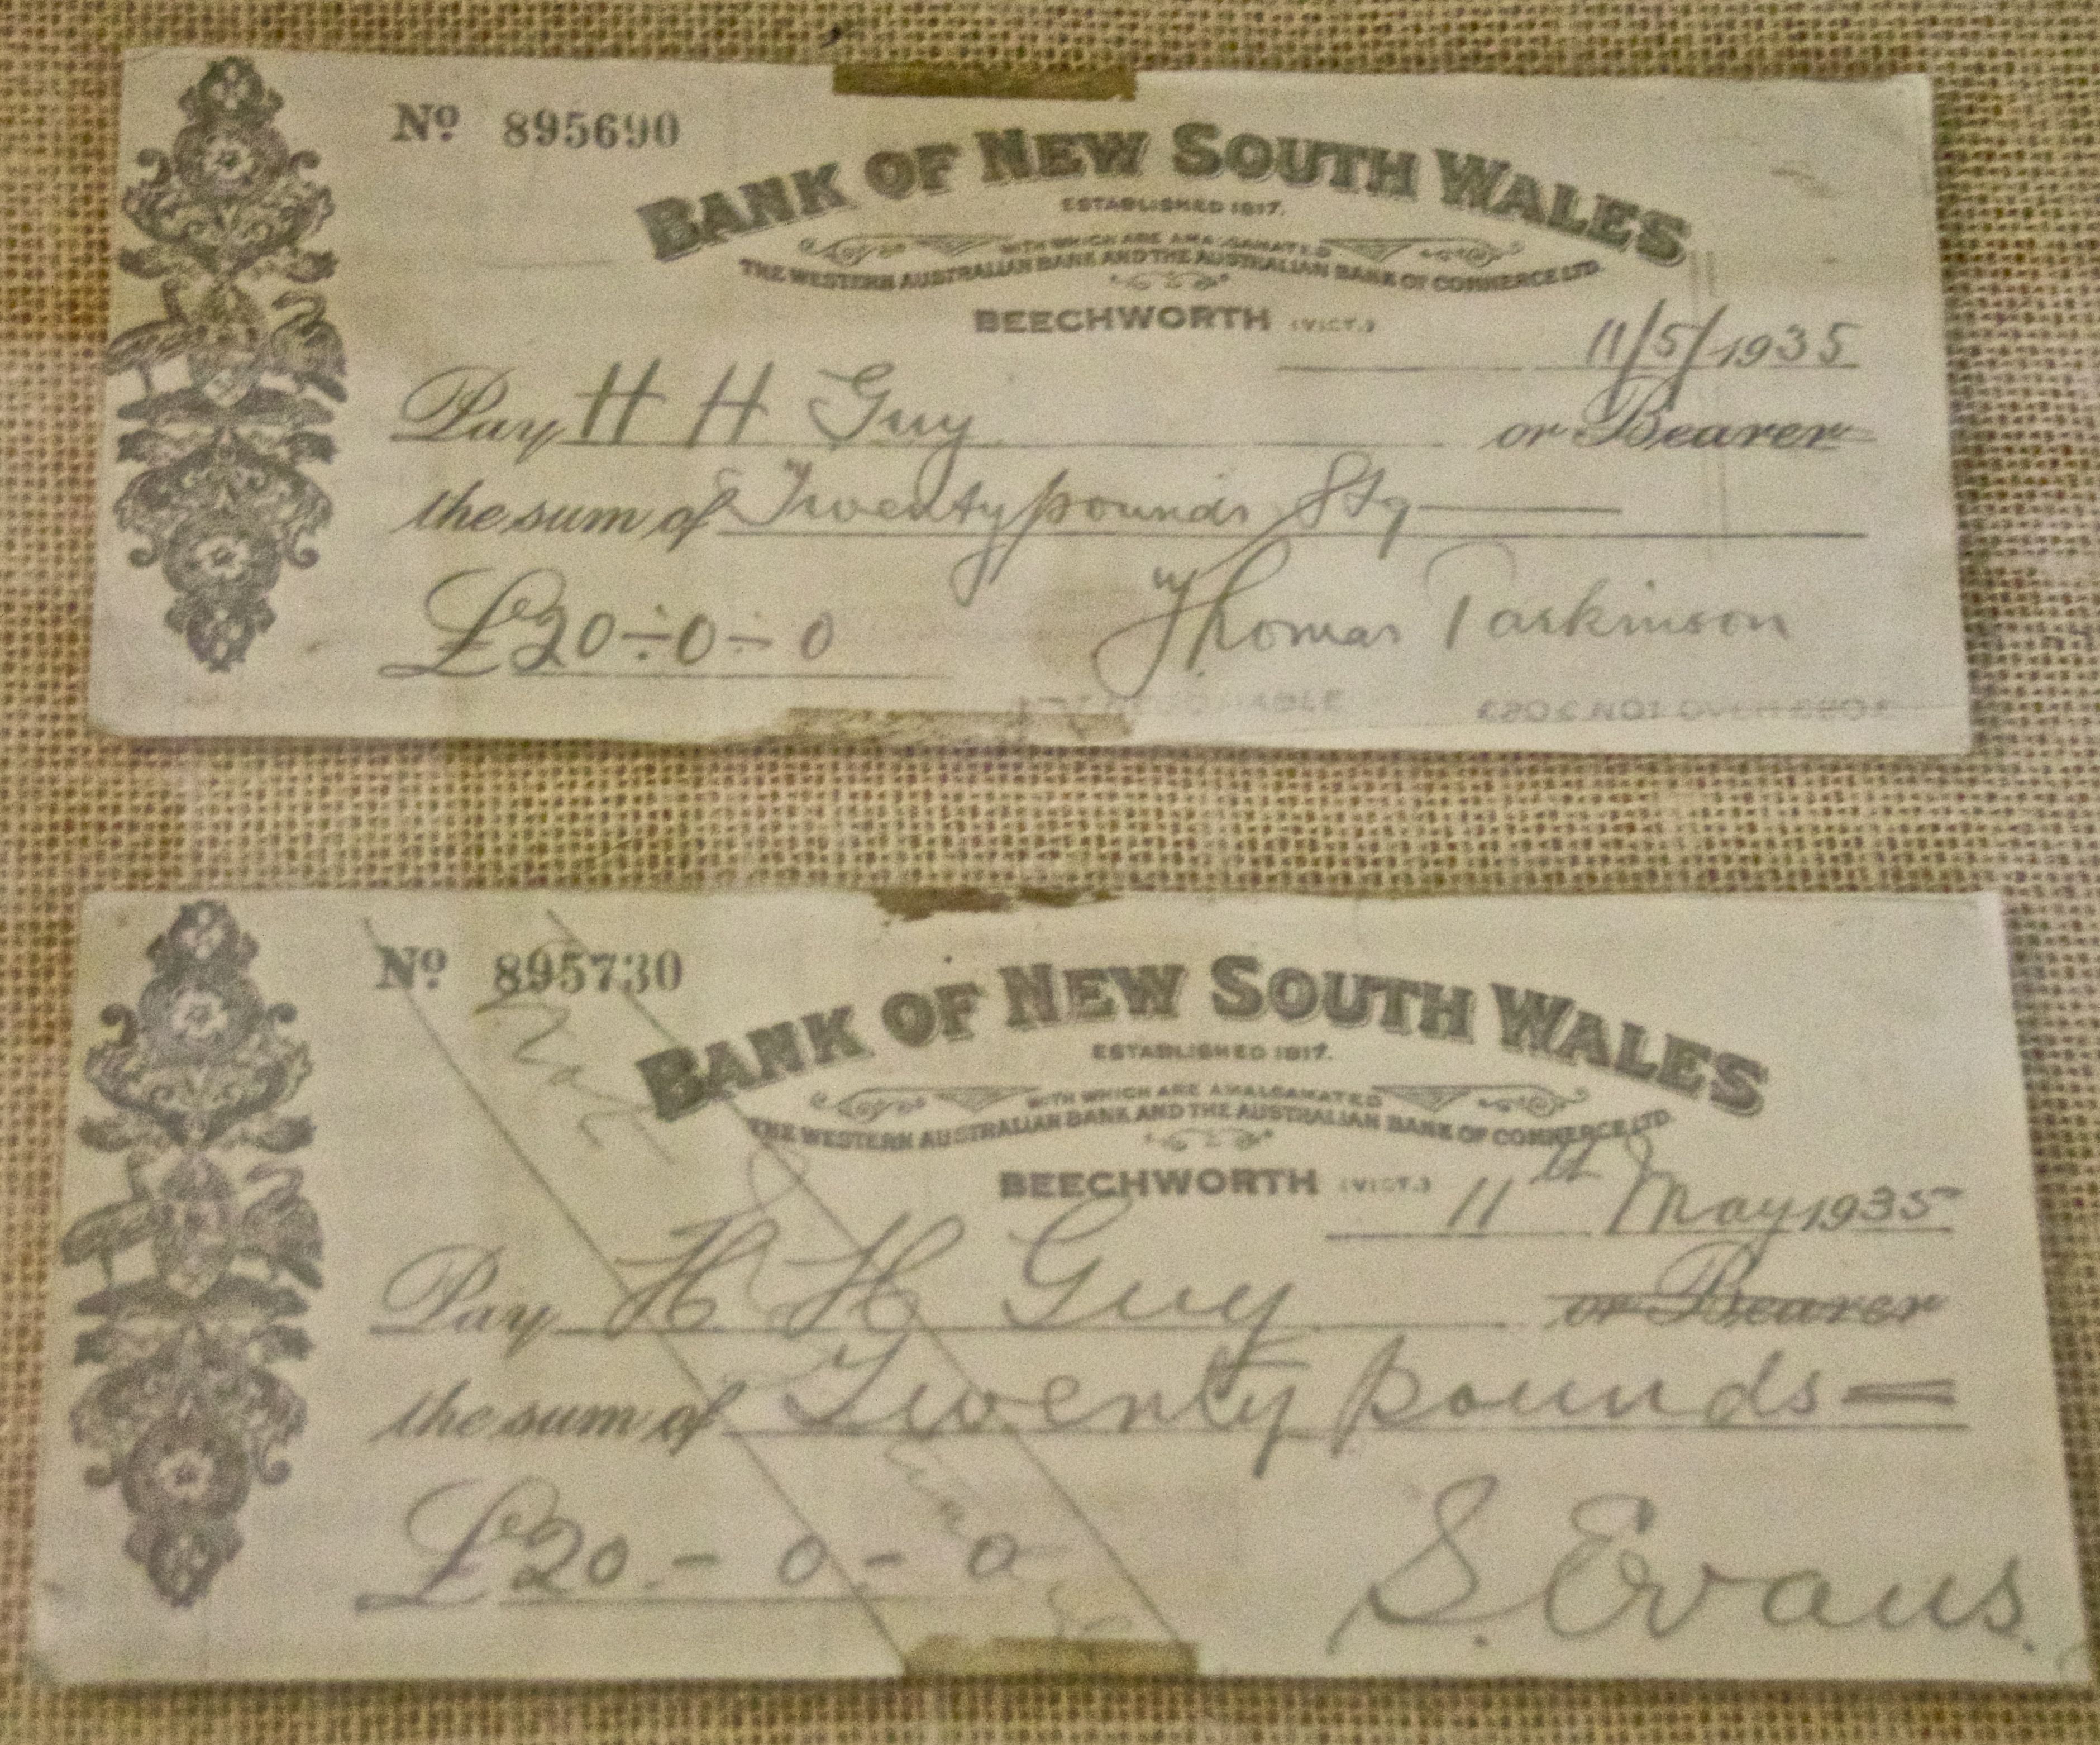 Nº 895690
BANK OF NEW SOUTH WALES
ESTABLISHED 1817.
WITH WHICH ARE AMALGAMATED
THE WESTERN AUSTRALIAN BANK AND THE AUSTRALIAN BANK OF COMMERCE LTD.
BEECHWORTH (VICT.)
11/5/1935
Pay H H Guy or Bearer
the sum of Twenty pounds Stg
£20-0-0
Thomas Parkinson
Nº 895730
BANK OF NEW SOUTH WALES
ESTABLISHED 1817.
WITH WHICH ARE AMALGAMATED
THE WESTERN AUSTRALIAN BANK AND THE AUSTRALIAN BANK OF COMMERCE LTD.
BEECHWORTH (VICT.)
11th May 1935
Pay H H Guy or Bearer
the sum of Twenty pounds
£20-0-0
S. Evans.